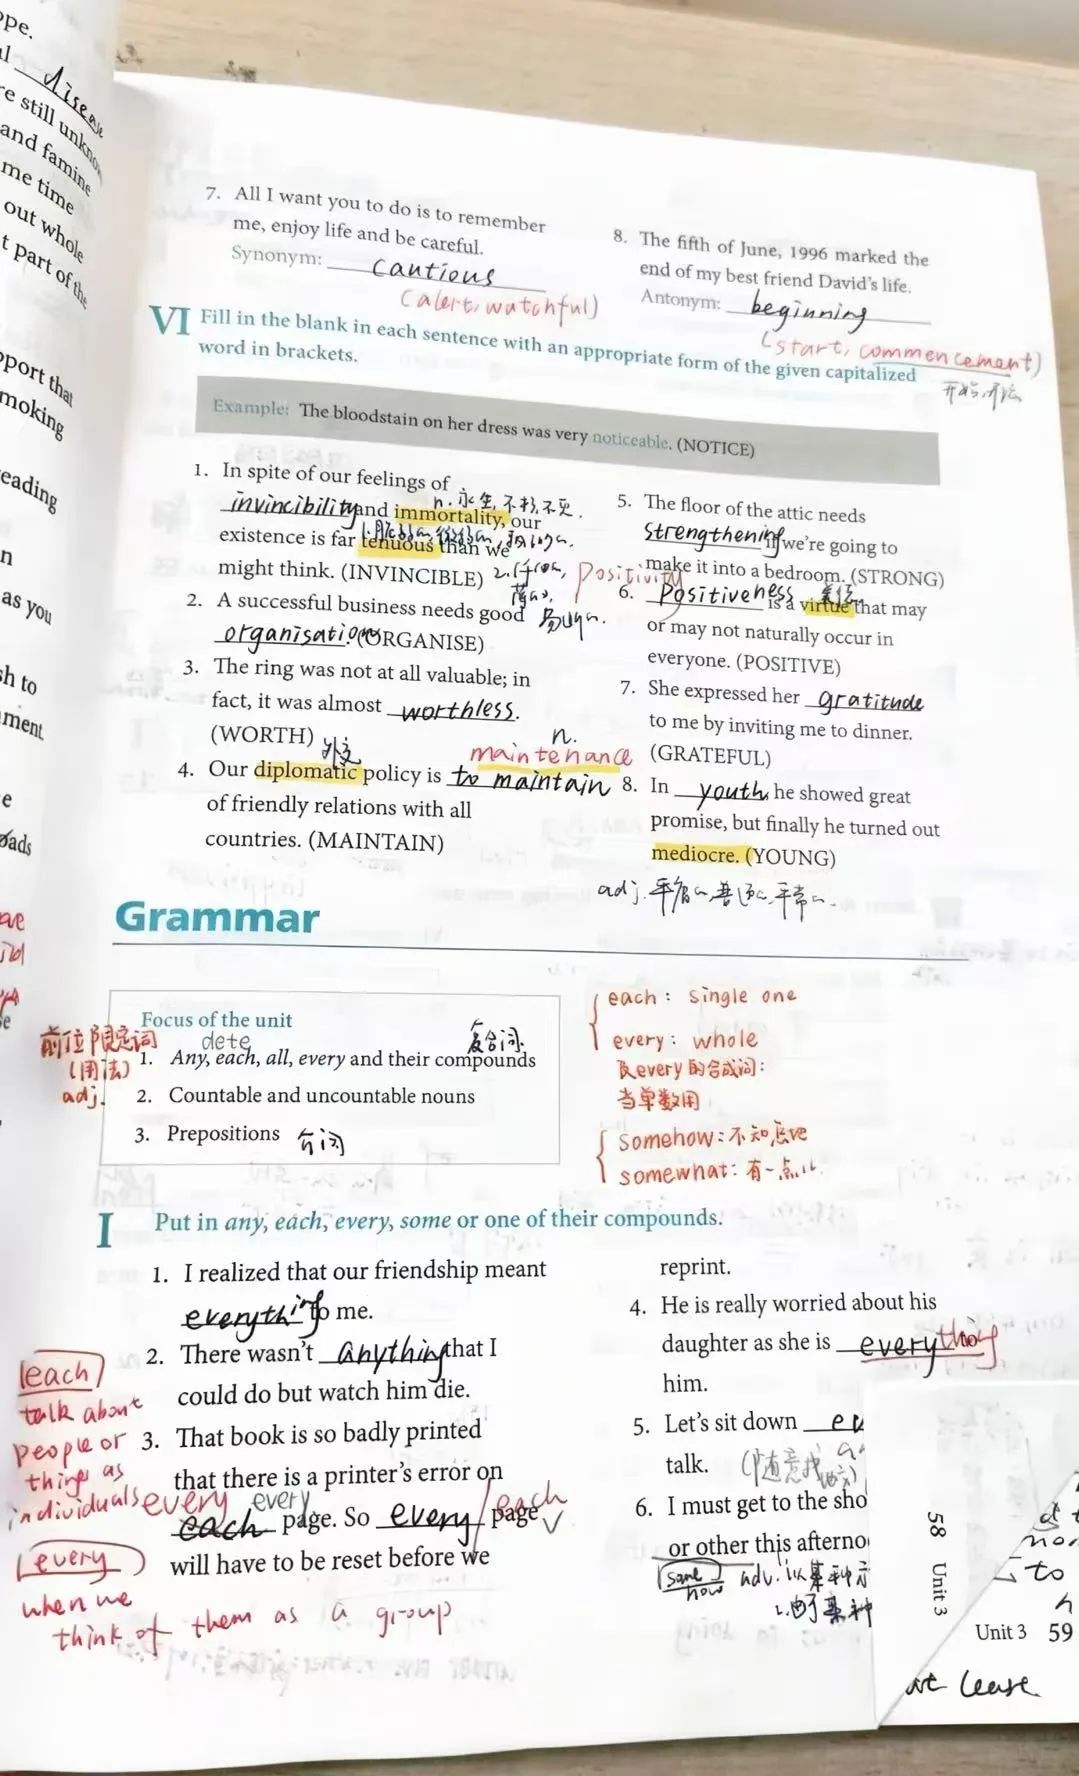 ope.
disease
re still unkno
and famine
me time
out whole
t part of the
pport that
moking
eading
n
as you
sh to
ment
e
oads
7. All I want you to do is to remember
me, enjoy life and be careful.
Synonym: cautious
(alert, watchful)
8. The fifth of June, 1996 marked the
end of my best friend David's life.
Antonym: beginning
(start, commencement)
VI Fill in the blank in each sentence with an appropriate form of the given capitalized
word in brackets.
Example: The bloodstain on her dress was very noticeable. (NOTICE)
1. In spite of our feelings of
n. 永生, 不朽, 不灭.
invincibility and immortality, our
existence is far tenuous than we
might think. (INVINCIBLE)
2. A successful business needs good
organisation (ORGANISE)
3. The ring was not at all valuable; in
fact, it was almost worthless.
(WORTH)
外交
n.
maintenance
4. Our diplomatic policy is to maintain
of friendly relations with all
countries. (MAINTAIN)
5. The floor of the attic needs
strengthening if we're going to
make it into a bedroom. (STRONG)
positivity
6. Positiveness is a virtue that may
or may not naturally occur in
everyone. (POSITIVE)
7. She expressed her gratitude
to me by inviting me to dinner.
(GRATEFUL)
8. In youth, he showed great
promise, but finally he turned out
mediocre. (YOUNG)
adj.
Grammar
Focus of the unit
前位限定词
(用法)
adj.
dete
复合词
1. Any, each, all, every and their compounds
2. Countable and uncountable nouns
3. Prepositions 介词
each: single one
every: whole
及every的合成词:
当单数用
somehow: 不知怎地
somewhat: 有一点儿
I Put in any, each, every, some or one of their compounds.
1. I realized that our friendship meant
everything to me.
2. There wasn't anything that I
could do but watch him die.
3. That book is so badly printed
that there is a printer's error on
every every each
each page. So every page
will have to be reset before we
each
talk about
people or
things as
individuals
every
when we
think of them as a group
reprint.
4. He is really worried about his
daughter as she is everything to
him.
5. Let's sit down
talk.
6. I must get to the sho
or other this afterno
some
how adv.
58 Unit 3
to
Unit 3 59
lease